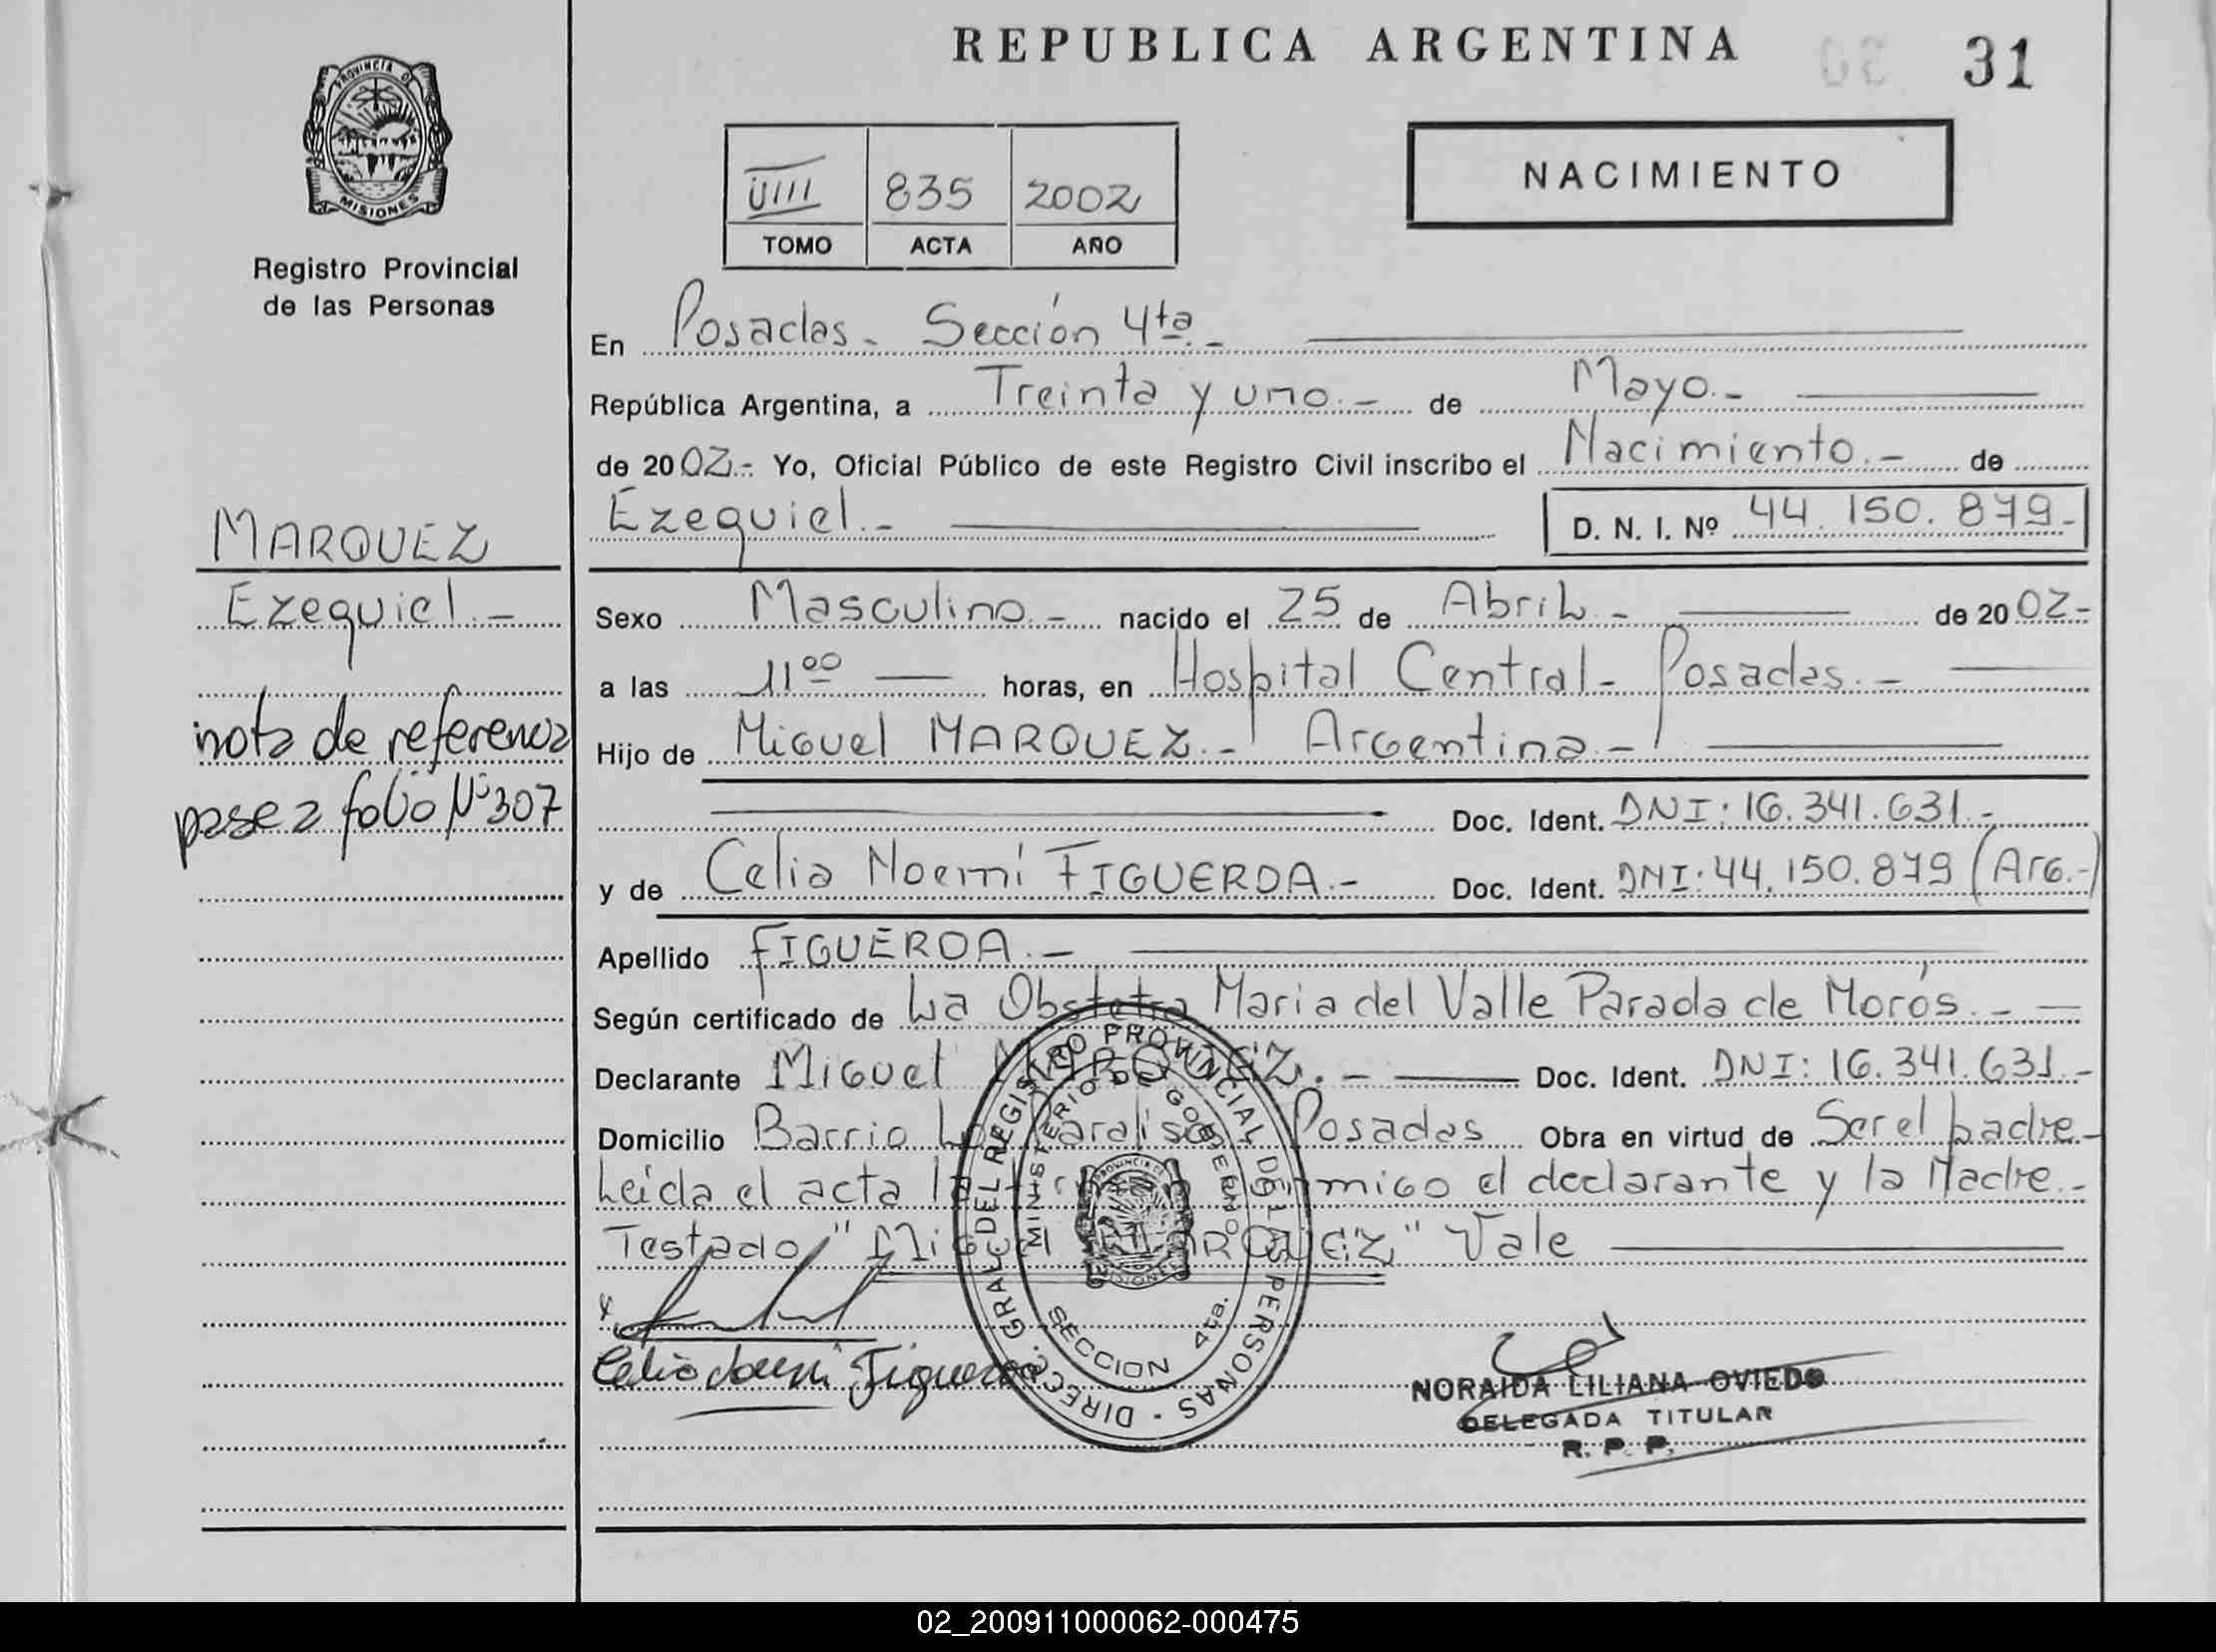 REPUBLICA ARGENTINA
31
PROVINCIA DE
MISIONES
Registro Provincial
de las Personas
NACIMIENTO
VIII 835 2002
TOMO ACTA AÑO
En Posadas - Sección 4ta. -
República Argentina, a Treinta y uno.- de Mayo.-
de 2002.- Yo, Oficial Público de este Registro Civil inscribo el Nacimiento.- de
Ezequiel.- D. N. I. Nº 44.150.879.-
MARQUEZ
Ezequiel.-
nota de referencia
pase a folio Nº 307
Sexo Masculino.- nacido el 25 de Abril.- de 2002.-
a las 11 00 horas, en Hospital Central - Posadas.-
Hijo de Miguel MARQUEZ.- Argentina.-
Doc. Ident. DNI: 16.341.631.-
y de Celia Noemí FIGUEROA.- Doc. Ident. DNI: 44.150.879 (Arg.-)
Apellido FIGUEROA.-
Según certificado de La Obstetra Maria del Valle Parada de Morós.-
Declarante Miguel MARQUEZ.- Doc. Ident. DNI: 16.341.631.-
Domicilio Barrio Posadas Obra en virtud de Ser el padre.-
Leída el acta conmigo el declarante y la Madre.-
Testado "Miguel MARQUEZ" Vale
Celia Noemi Figueroa
DIRECC. GRAL. DEL REGISTRO PROVINCIAL DE LAS PERSONAS -
MINISTERIO DE GOBIERNO
PROVINCIA DE
MISIONES
SECCION 4ta.
NORAIDA LILIANA OVIEDO
DELEGADA TITULAR
R. P. P.
02_200911000062-000475